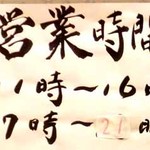 営業時間
1時～16時
7時～21時